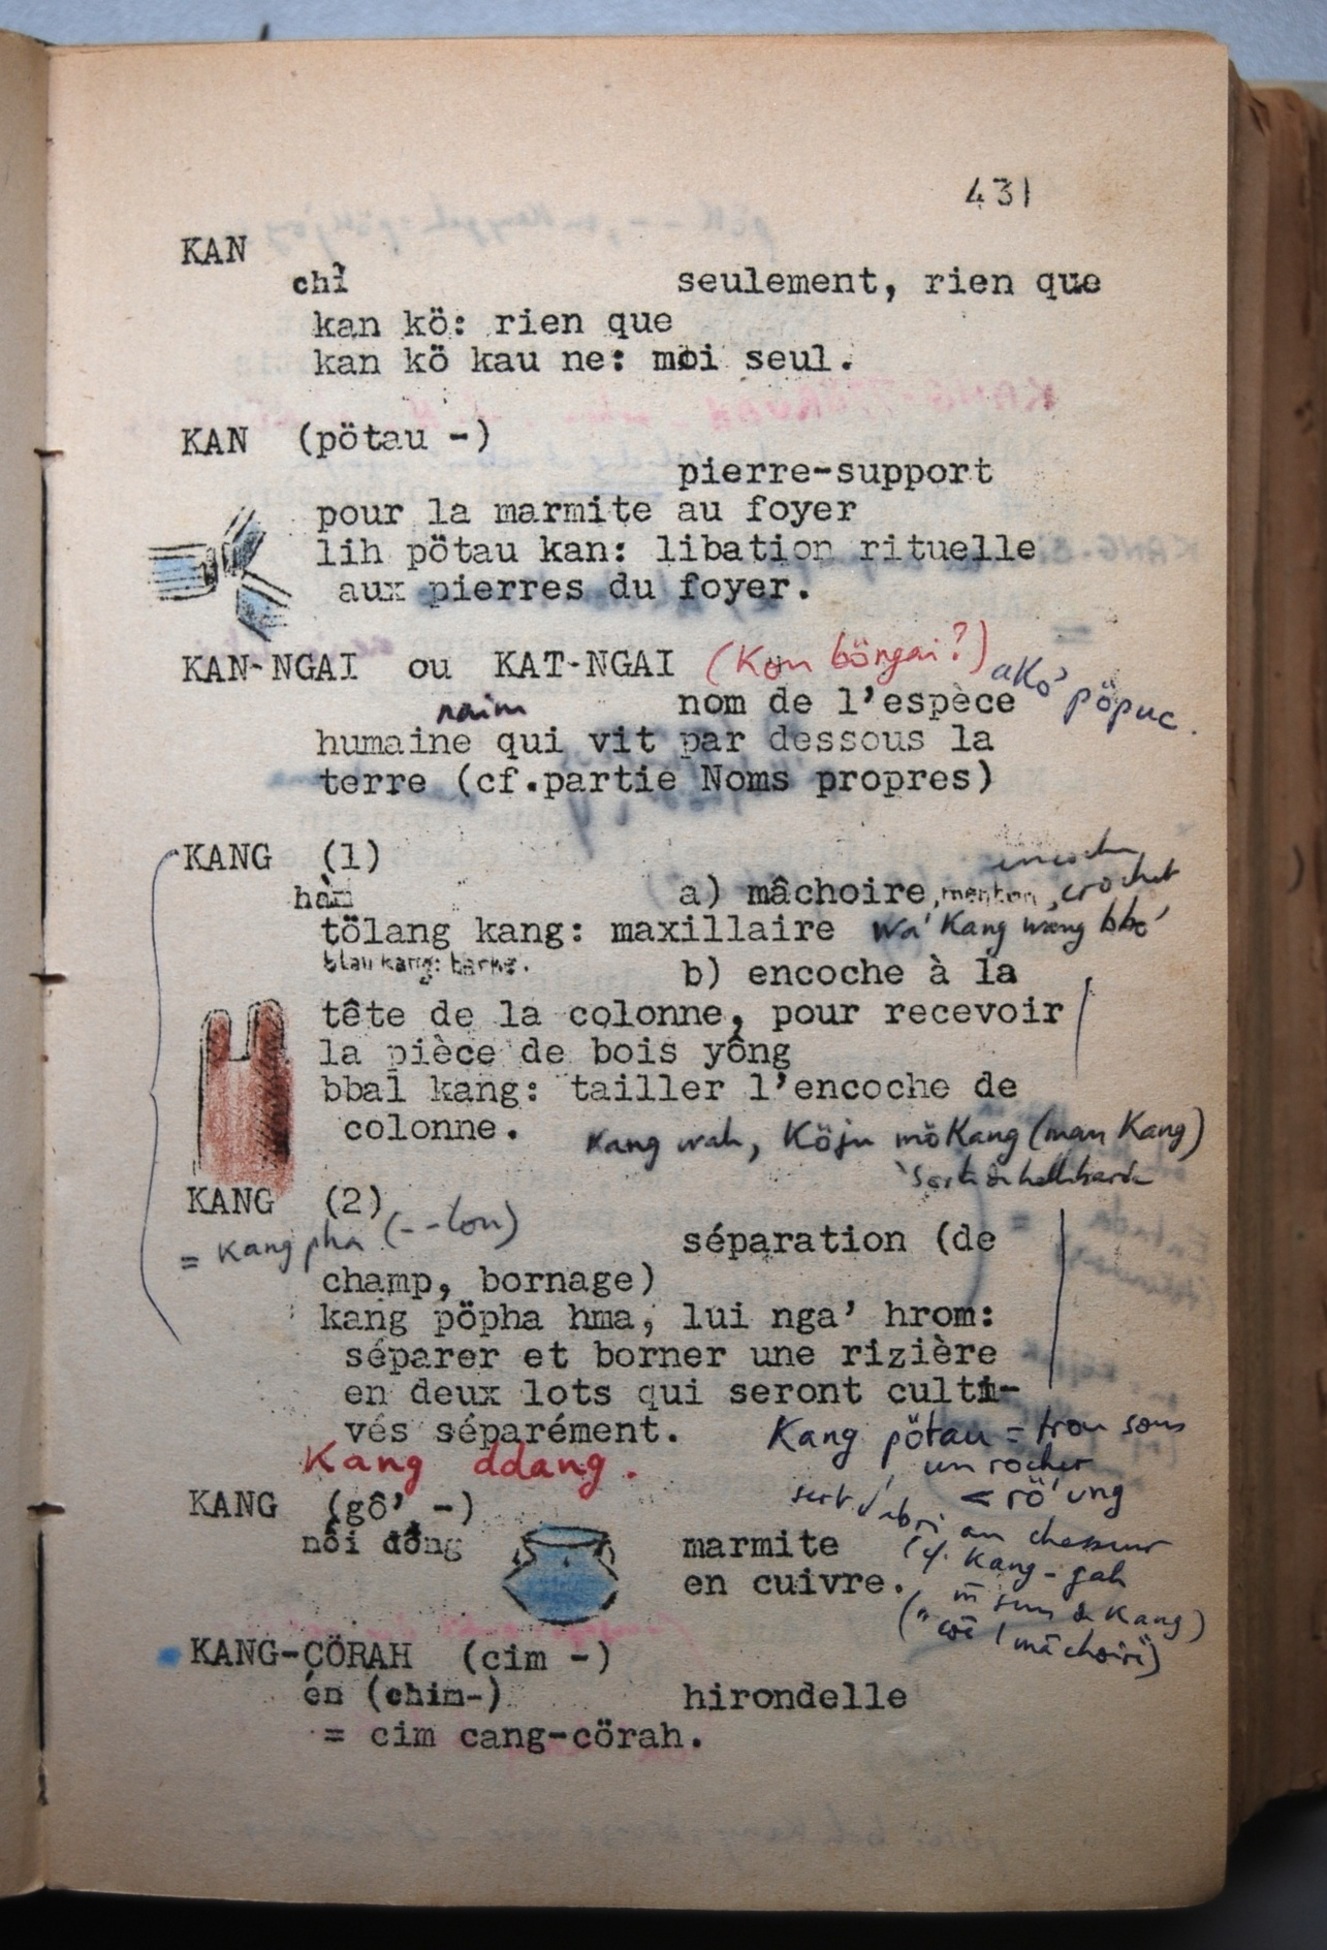 431
KAN
chỉ seulement, rien que
kan kö: rien que
kan kö kau ne: moi seul.
KAN (pötau -)
pierre-support
pour la marmite au foyer
lih pötau kan: libation rituelle
aux pierres du foyer.
KAN-NGAI ou KAT-NGAI (Kon böngai?) akó pöpuc.
nom de l'espèce
naim
humaine qui vit par dessous la
terre (cf.partie Noms propres)
KANG (1)
encoche
hàm a) mâchoire, menton, crochet
tölang kang: maxillaire wa' Kang wang
blau kang: barbe. b) encoche à la
tête de la colonne, pour recevoir
la pièce de bois yông
bbal kang: tailler l'encoche de
colonne. Kang wah, Köju mö Kang (man Kang)
sorte de hallebarde
KANG (2)
= Kang pha (--lon) séparation (de
champ, bornage)
kang pöpha hma, lui nga' hrom:
séparer et borner une rizière
en deux lots qui seront culti-
vés séparément. Kang pötau = trou sous
un rocher
Kang ddang.
sert d'abri au chasseur < rö' ung
KANG (gô' -)
nồi đồng marmite
en cuivre. (cf. Kang-gah
m̄ sens de Kang)
mâchoire")
KANG-CÖRAH (cim -)
én (chim-) hirondelle
= cim cang-cörah.